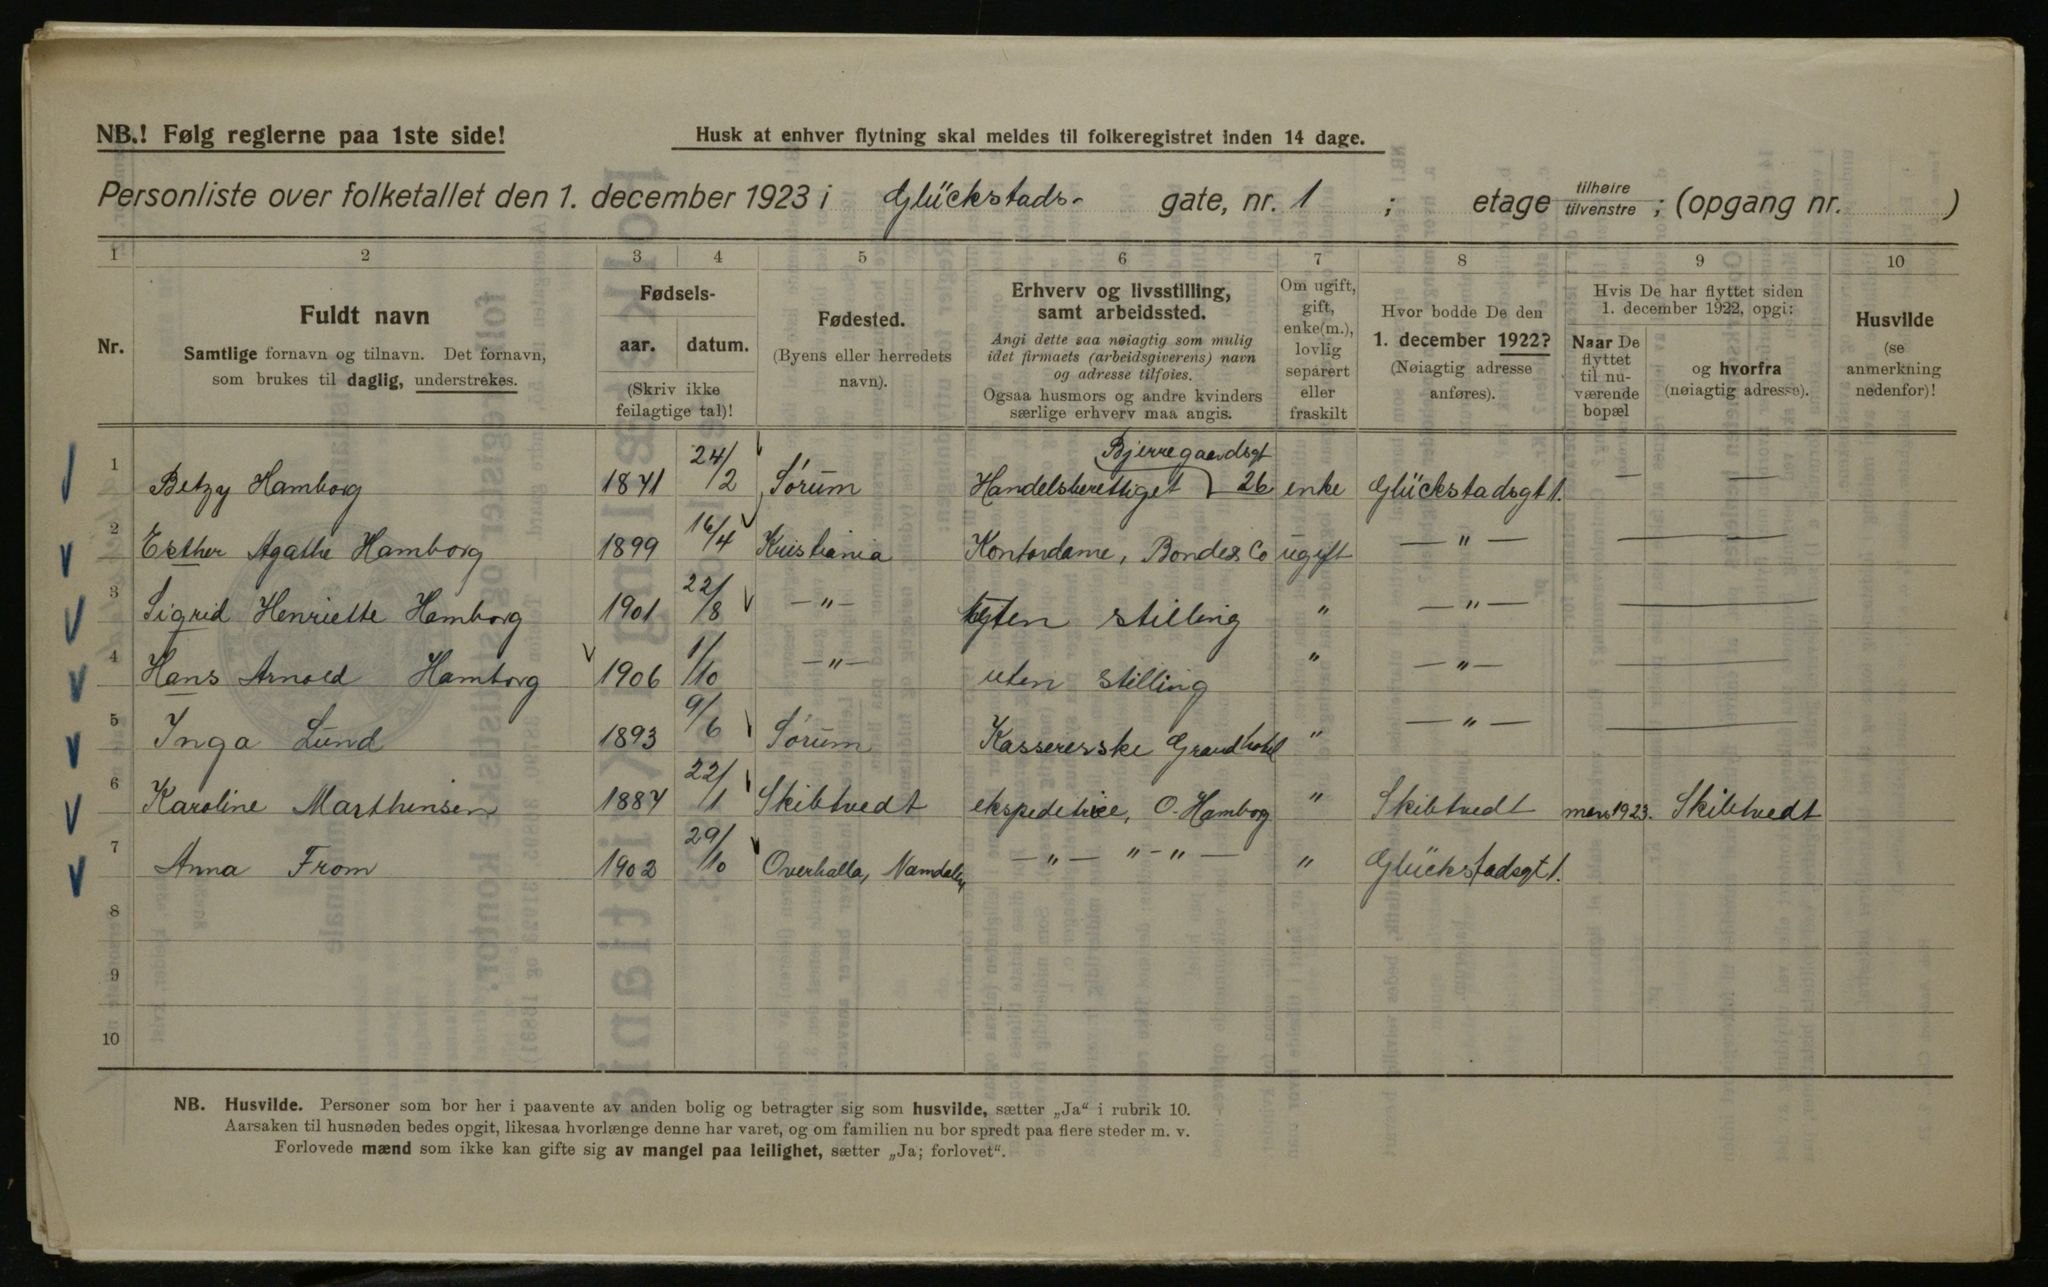 NB.! Følg reglerne paa 1ste side!
Husk at enhver flytning skal meldes til folkeregistret inden 14 dage.
Personliste over folketallet den 1. december 1923 i Glückstads- gate, nr. 1 ; etage tilhøire tilvenstre ; (opgang nr. )
1 2 3 4 5 6 7 8 9 10
Nr.
Fuldt navn
Samtlige fornavn og tilnavn. Det fornavn,
som brukes til daglig, understrekes.
Fødsels-
aar. datum.
(Skriv ikke
feilagtige tal)!
Fødested.
(Byens eller herredets
navn).
Erhverv og livsstilling,
samt arbeidssted.
Angi dette saa nøiagtig som mulig
idet firmaets (arbeidsgiverens) navn
og adresse tilføies.
Ogsaa husmors og andre kvinders
særlige erhverv maa angis.
Om ugift,
gift,
enke(m.),
lovlig
separert
eller
fraskilt
Hvor bodde De den
1. december 1922?
(Nøiagtig adresse
anføres).
Hvis De har flyttet siden
1. december 1922, opgi:
Naar De
flyttet
til nu-
værende
bopæl
og hvorfra
(nøiagtig adresse).
Husvilde
(se
anmerkning
nedenfor)!
Bjerregaardsgt
1 Betzy Hamborg 1871 24/2 Sørum Handelsberettiget 26 enke Glückstadsgt 1. — —
2 Esther Agathe Hamborg 1899 16/4 Kristiania Kontordame, Bondes Co ugift — " — —
3 Sigrid Henriette Hamborg 1901 22/8 — " — uten stilling " — " — —
4 Hans Arnold Hamborg 1906 1/10 — " — uten stilling " — " — —
5 Inga Lund 1893 9/6 Sørum Kassererske Grand hotel " — " — —
6 Karoline Marthinsen 1887 22/1 Skibtvedt ekspeditrice, O. Hamborg " Skibtvedt 1923. Skibtvedt
7 Anna From 1902 29/10 Overhalla, Namdalen — " — " — " — " Glückstadsgt 1.
8
9
10
NB. Husvilde. Personer som bor her i paavente av anden bolig og betragter sig som husvilde, sætter „Ja“ i rubrik 10.
Aarsaken til husnøden bedes opgit, likesaa hvorlænge denne har varet, og om familien nu bor spredt paa flere steder m. v.
Forlovede mænd som ikke kan gifte sig av mangel paa leilighet, sætter „Ja; forlovet“.